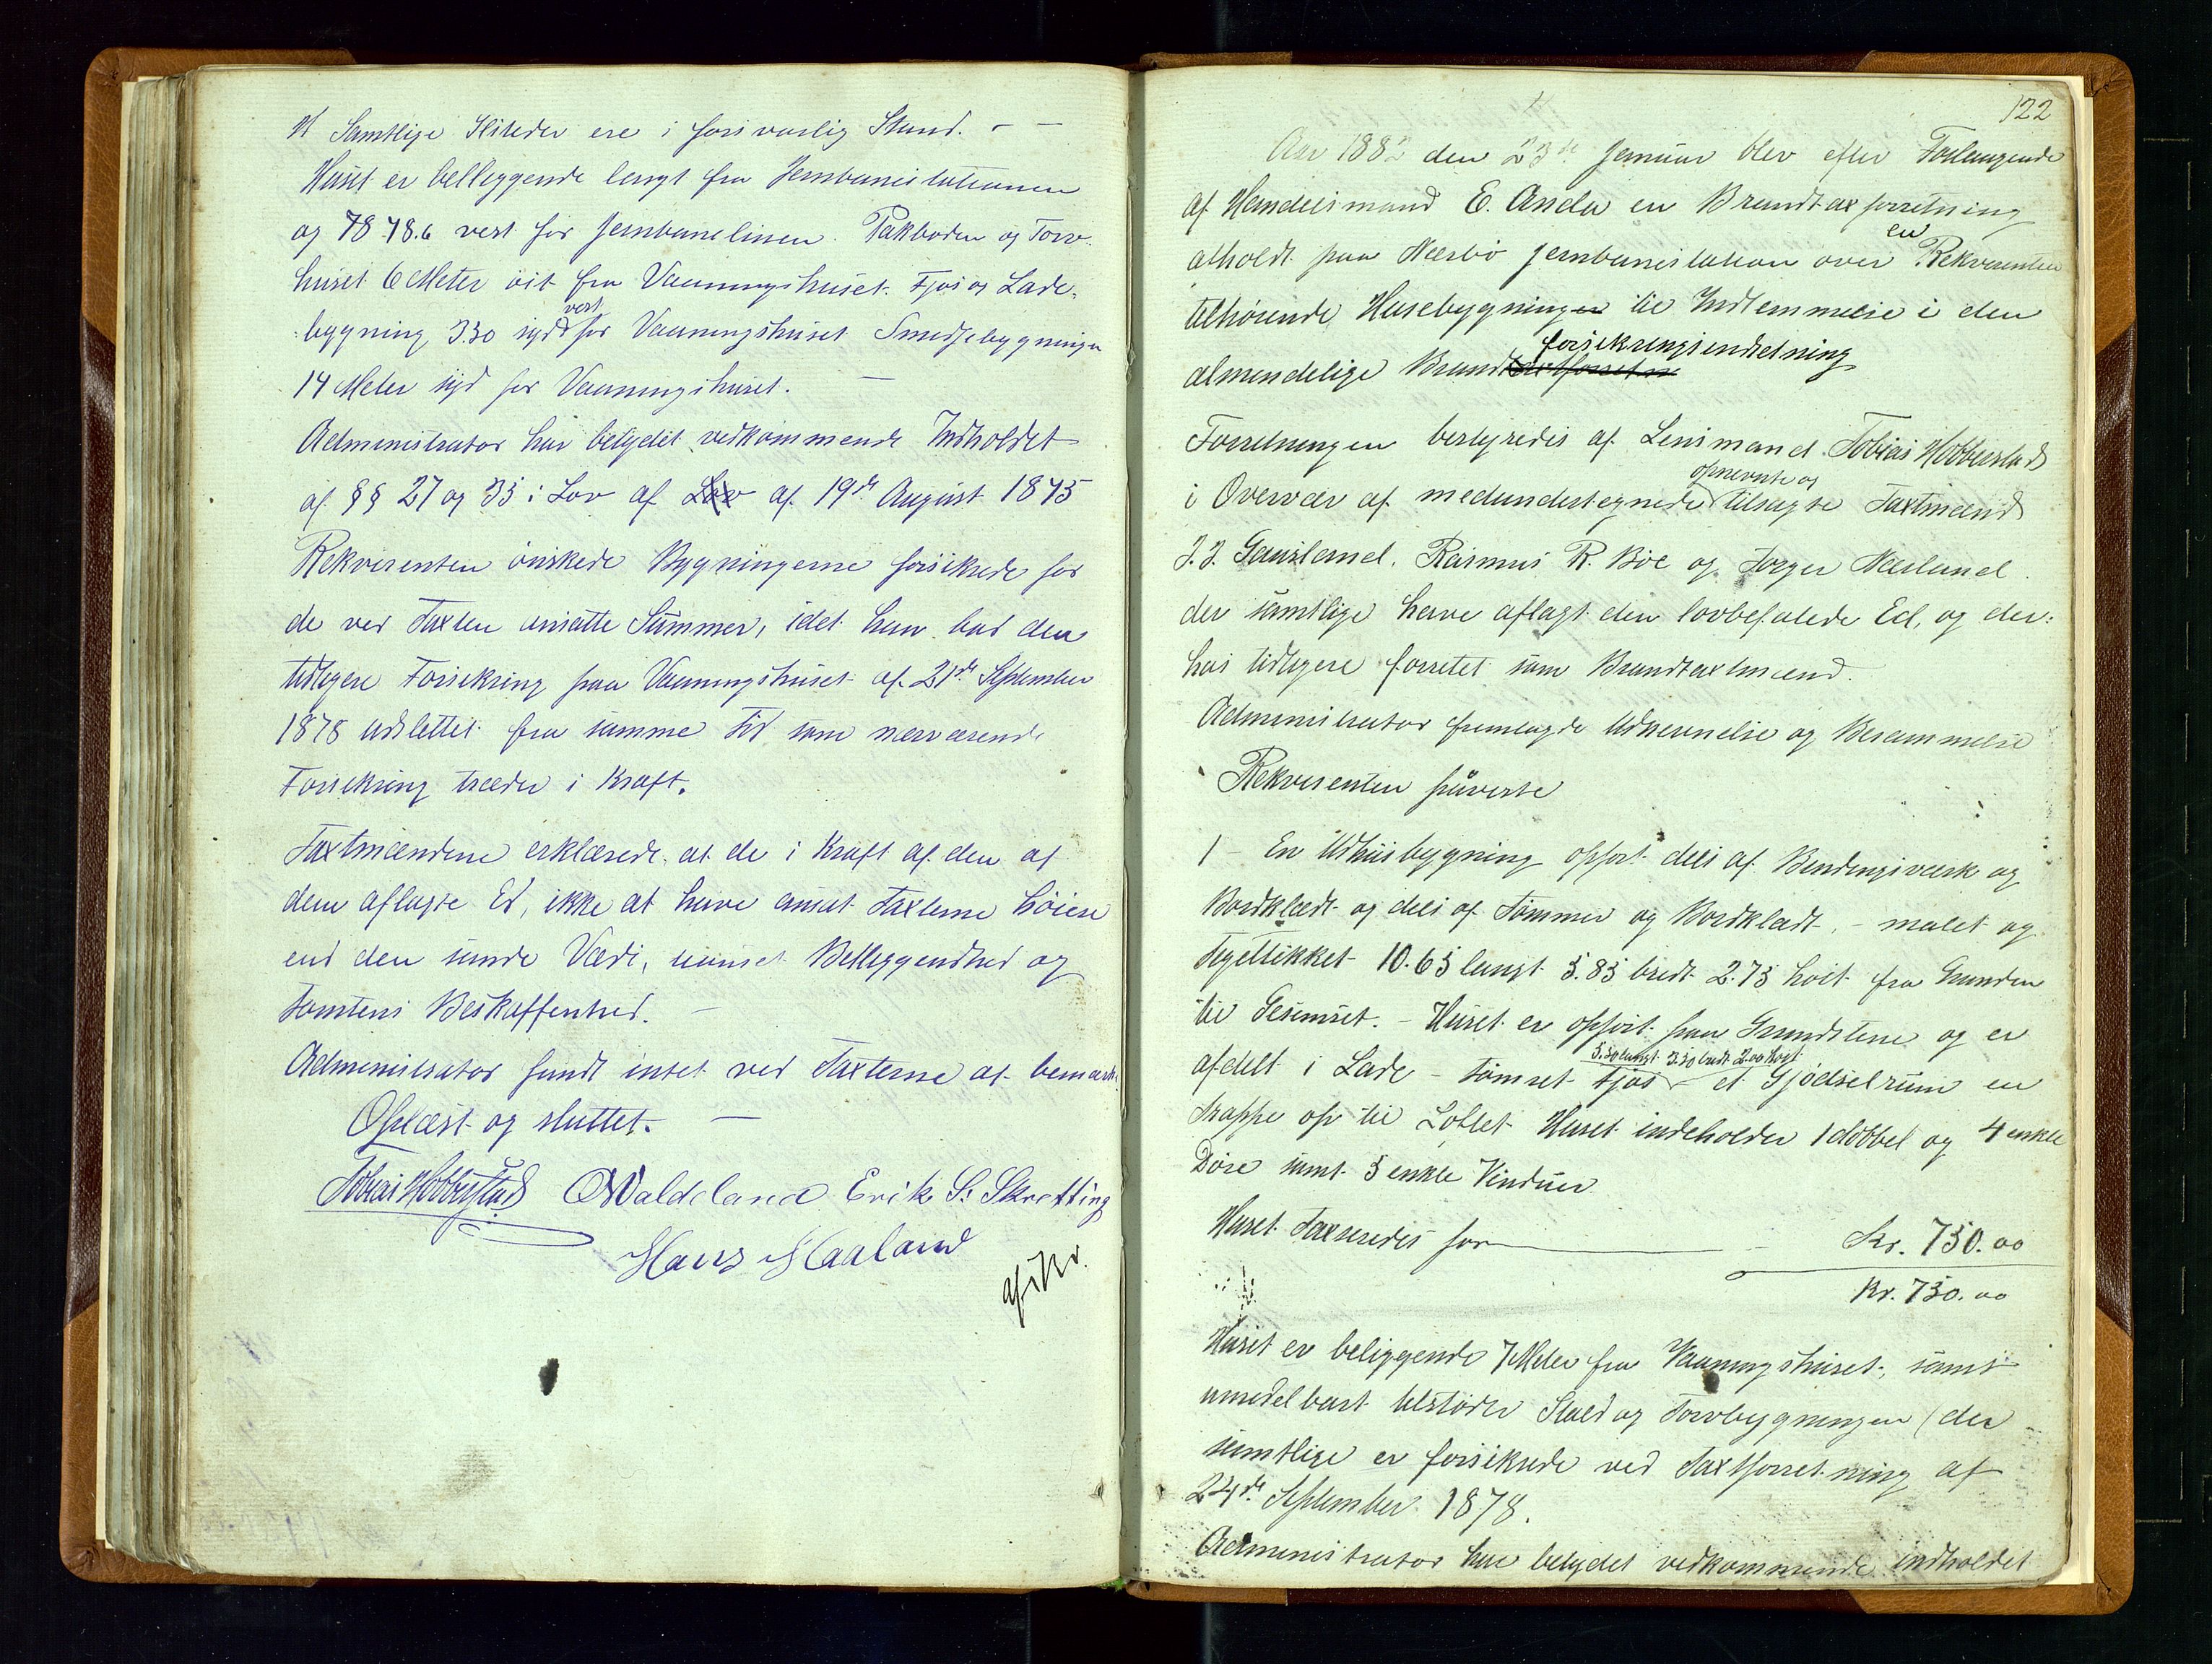 Samtlige Ilsteder ere i forsvarlig Stand. - -
Huset er belleggende langt fra Jernbanestationen
og 78 78.6 vest for Jernbanelinien. Pakboden og Torv-
huset 6 Meter öst fra Vaaningshuset. Fjös og Lade-
vest
bygning 3.30 syd for Vaaningshuset Smedjebygningen
14 Meter syd for Vaaningshuset. -
Administrator har betydet vedkommende Indholdet
af §§ 27 og 35 i Lov af Lov af 19de August 1845
Rekvirenten önskede Bygningerne forsikrede for
de ved Taxten ansatte Summer, idet han bad den
tidligere Forsikring paa Vaaningshuset af 21de September
1878 udslettet fra samme Tid som nærværende
Forsikring træder i Kraft.
Taxtmændene erklærede at de i Kraft af den af
dem aflagte Ed, ikke at have ansat Taxterne höiere
end den sande Værdi, uanset Belleggendhed og
Tomtens Beskaffenhed. -
Administrator fandt intet ved Taxterne at bemærke
Oplæst og sluttet. -
Tobias Hobberstad O Waldeland Erik S. Skretting
Hans Haaland
122
Aar 1882 den 23de Januar blev efter Forlangende
af Handelsmand E. Anda en Brandtaxforretning
en
afholdt paa Nærbö Jernbanestation over Rekvirenten
tilhörende Husebygningen til Indlemmelse i den
forsikringsindretning
almindelige Brand
Forretningen bestyredes af Lensmand Tobias Hobberstad
opnevnte og
i Overvær af medundertegnede tilsagte Taxtmænd
J. J. Gausland, Rasmus R. Böe og Torger Nærland
der samtlige have aflagt den lovbefalede Ed, og der-
hos tidligere forrettet som Brandtaxtmænd.
Administrator fremlagde Udnævnelse og Berammelse
Rekvirenten paaviste
1 - En Udhusbygning opfört dels af Bindingsværk og
Bordklædt og dels af Tömmer og Bordklædt, - malet og
Tegltækket 10.65 langt 5.85 bredt 2.75 höit fra Grunden
til Gesimset. - Huset er opfört paa Grundstene og er
5.30 langt 3.30 bredt 2.00 högt
afdelt i Lade - tömret Fjös - et Gjödselrum en
Trappe op til Loftet Huset indeholder 1 dobbel og 4 enkle
Döre samt 5 enkle Vinduer
Huset Taxeredes for Kr. 750.00
Kr. 750.00
Huset er beliggende 7 Meter fra Vaaningshuset, samt
umidelbart tilstöder Stald og Torvbygningen (der
samtlige er forsikrede ved Taxtforretning af
24de September 1878.
Administrator har betydet vedkommende indholdet